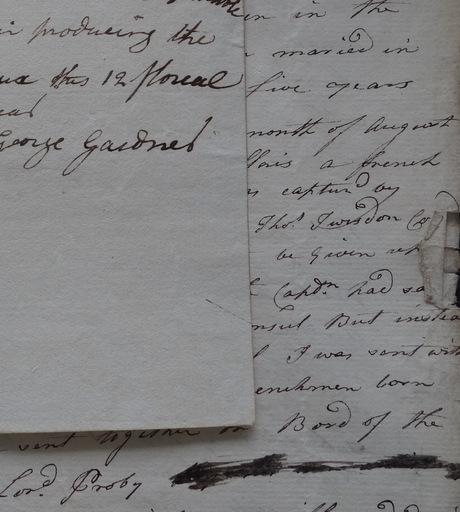 producing the
this 12 floreal
George Gardner
in the
maried in
five years
month of August
a french
capturd by
Thos. Twisdon
be Given up
Captn. had
But instead
I was sent with
enchmen born
sent together
Bord of the
Lord Proby